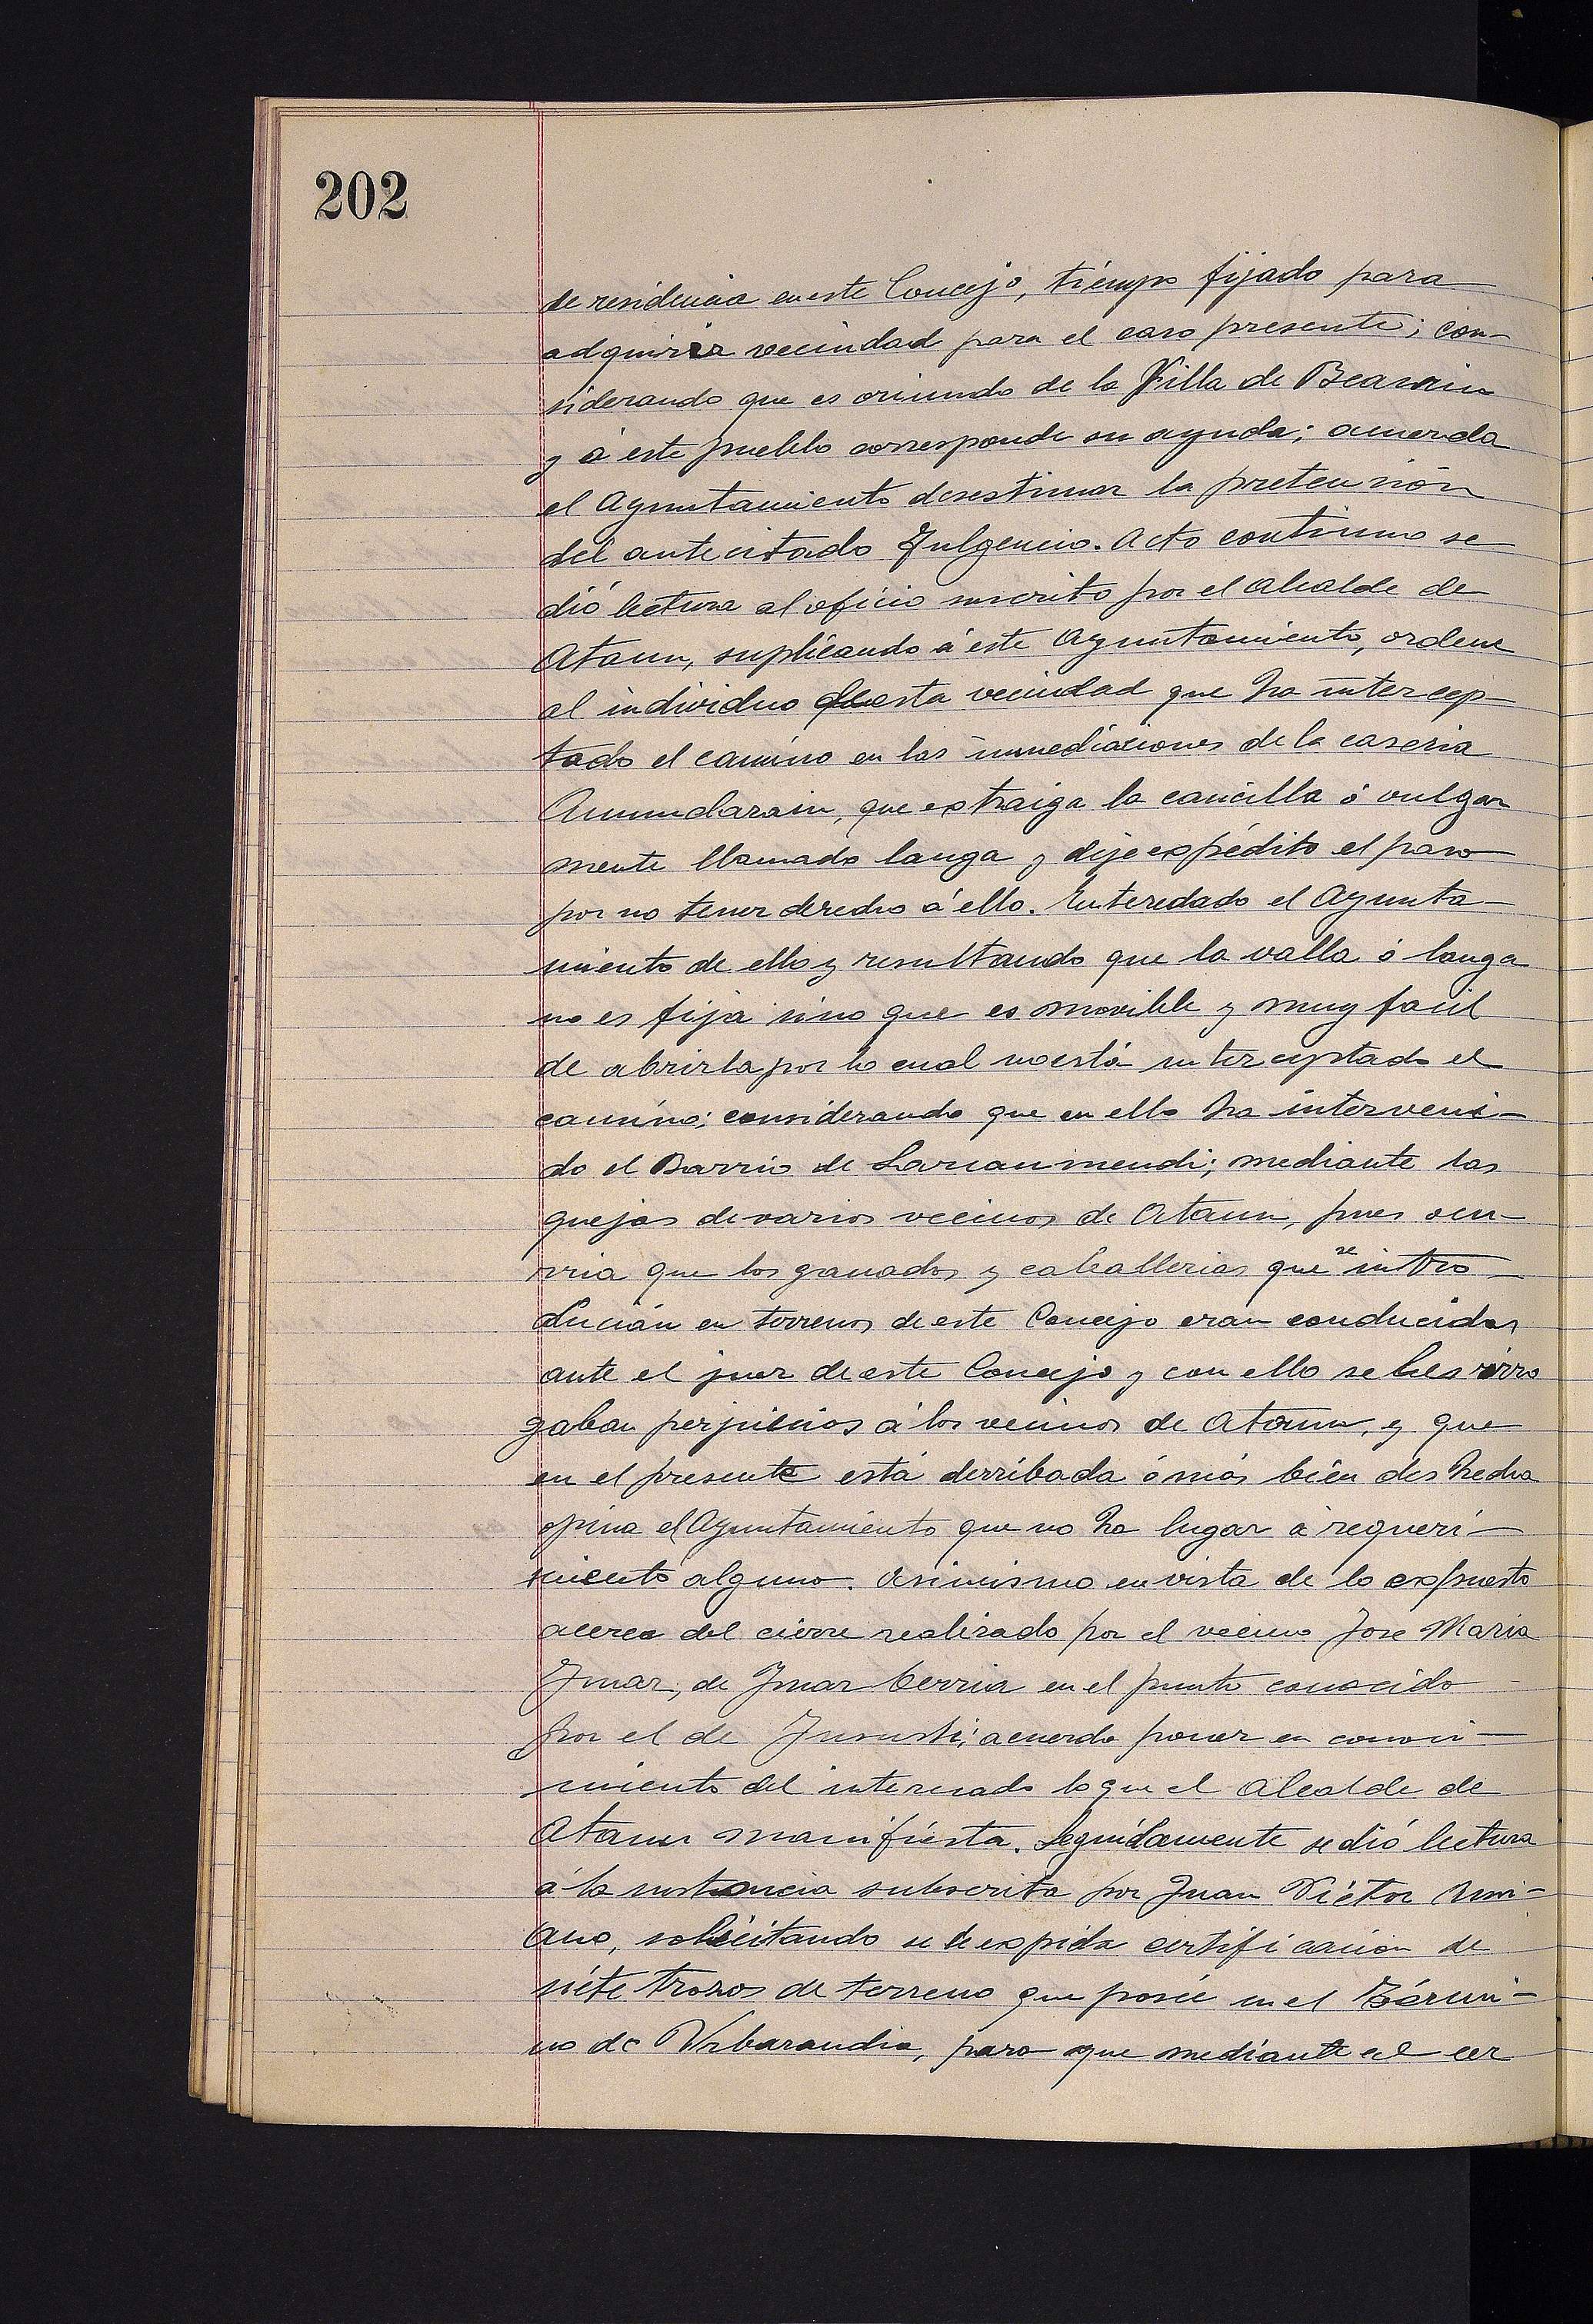 202
de residencia en este Concejo, tiempo fijado para
adquirir vecindad para el caso presente; con-
siderando que es oriundo de la Villa de Beasain
y á este pueblo corresponde su ayuda; acuerda
el Ayuntamiento desestimar la pretensión
del antecitado Fulgencio. Acto continuo se
dió lectura al oficio suscrito por el alcalde de
Ataun, suplicando á este Ayuntamiento, ordene
al individuo de esta vecindad que ha intercep-
tado el camino en las inmediaciones de la caseria
Amundarain, que extraiga la cancilla ó vulgar
mente llamado langa y deje expédito el paso
por no tener derecho á ello. Enteredado el Ayunta-
miento de ello y resultando que la valla ó langa
no es fija sino que es movible y muy facil
de abrirla por lo cual no está interceptado el
camino; considerando que en ello ha interveni-
do el Barrio de Lazcaumendi; mediante las
quejas de varios vecinos de Ataun, pues ocu-
rria que los ganados y caballerias que se intro-
ducian en terrenos de este Concejo eran conducidos
ante el juez de este Concejo y con ello se les irro
gaban perjuicios á los vecinos de Ataun, y que
en el presente está derribada ó más bién deshecha
opina el Ayuntamiento que no ha lugar á requeri-
miento alguno. Asimismo en vista de lo expuesto
acerca del cierre realizado por el vecino Jose Maria
de en el punto conocido
por el de acuerda poner en conoci-
miento del interesado lo que el Alcalde de
Ataun manifiesta. Seguidamente se dió lectura
á la instancia subscrita por Juan Victor
solicitando se le expida certificación de
siete trozos de terreno que posée en el Térmi-
no de Urbarandia, para que mediante el cer